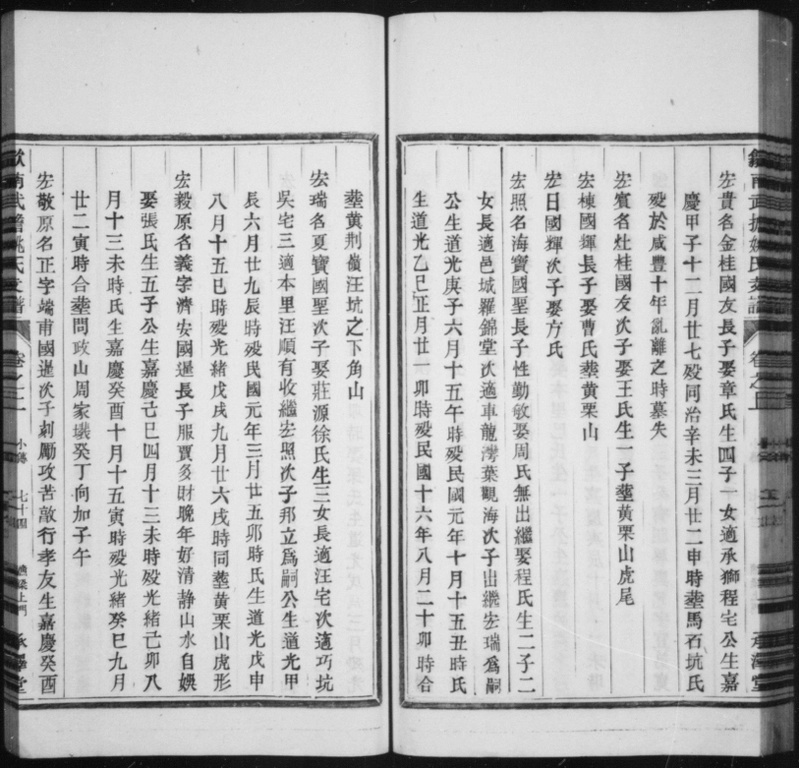 宏貴名金桂國友長子娶章氏生四子一女適承獅程宅公生嘉
慶甲子十二月廿七歿同治辛未三月廿二申時塟馬石坑氏
歿於咸豐十年亂離之時墓失
宏賓名灶桂國友次子娶王氏生一子塟黃栗山虎尾
宏棟國輝長子娶曹氏塟黃栗山
宏日國輝次子娶方氏
宏照名海寶國聖長子性勤敏娶周氏無出繼娶程氏生二子二
女長適邑城羅錦堂次適車龍灣葉觀海次子出繼宏瑞為嗣
公生道光庚子六月十五午時歿民國元年十月十五丑時氏
生道光乙巳正月廿一卯時歿民國十六年八月二十卯時合
塟黃荆嶺汪坑之下角山
宏瑞名夏寶國聖次子娶莊源徐氏生三女長適汪宅次適巧坑
吳宅三適本里汪順有收繼宏照次子邦立為嗣公生道光甲
辰六月廿九辰時歿民國元年三月廿五卯時氏生道光戊申
八月十五巳時歿光緒戊戌九月廿六戌時同塟黃栗山虎形
宏毅原名義字濟安國暹長子服賈多財晚年好清靜山水自娛
娶張氏生五子公生嘉慶己巳四月十三未時歿光緒己卯八
月十三未時氏生嘉慶癸酉十月十五寅時歿光緒癸巳九月
廿二寅時合塟問政山周家墳癸丁向加子午
宏敬原名正字端甫國暹次子刻勵攻苦敵行孝友生嘉慶癸酉
卷之二
小傳
七十四
承澤堂